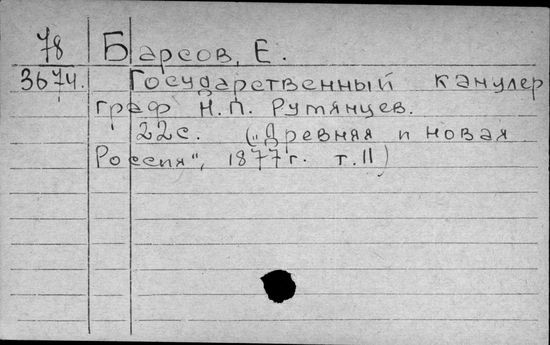 78 Барсов, Е.
3674. Государственный канцлер
граф Н.П. Румянцев.
22с. („Древняя и новая
Россия", 1877г. т.II)